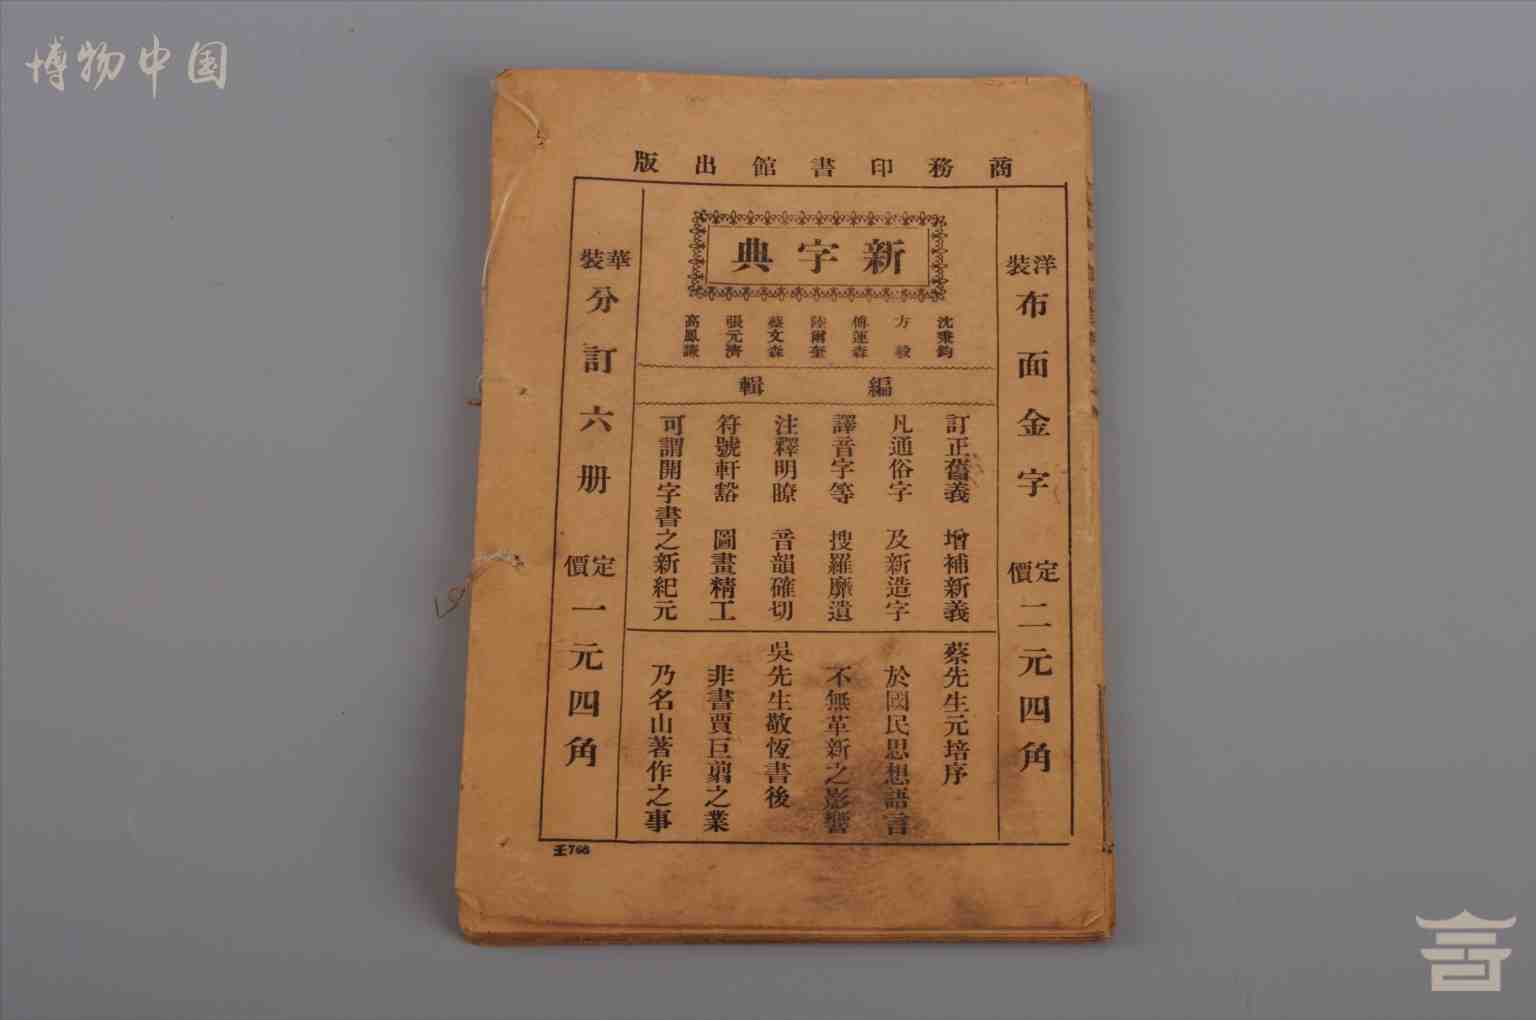 博物中国
商務印書館出版
洋裝
布面金字
定價
二元四角
新字典
沈秉鈞
方毅
傅運森
陸爾奎
蔡文森
張元濟
高鳳謙
編輯
訂正舊義 增補新義
凡通俗字 及新造字
譯音字等 搜羅靡遺
注釋明瞭 音韻確切
符號軒豁 圖畫精工
可謂開字書之新紀元
蔡先生元培序
於國民思想語言
不無革新之影響
吳先生敬恆書後
非書賈巨翦之業
乃名山著作之事
華裝
分訂六册
定價
一元四角
王768